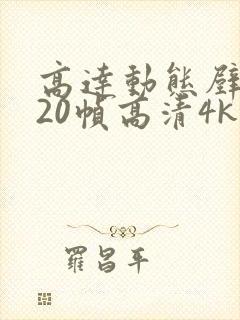 高達動態壁
20幀高清4k
羅昌平